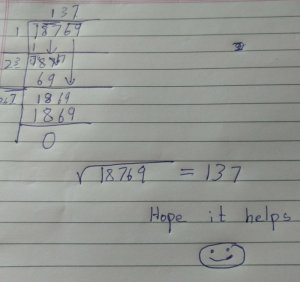 137
1 18769
1
23
69
1869
1869
0
√18769 = 137
Hope it helps